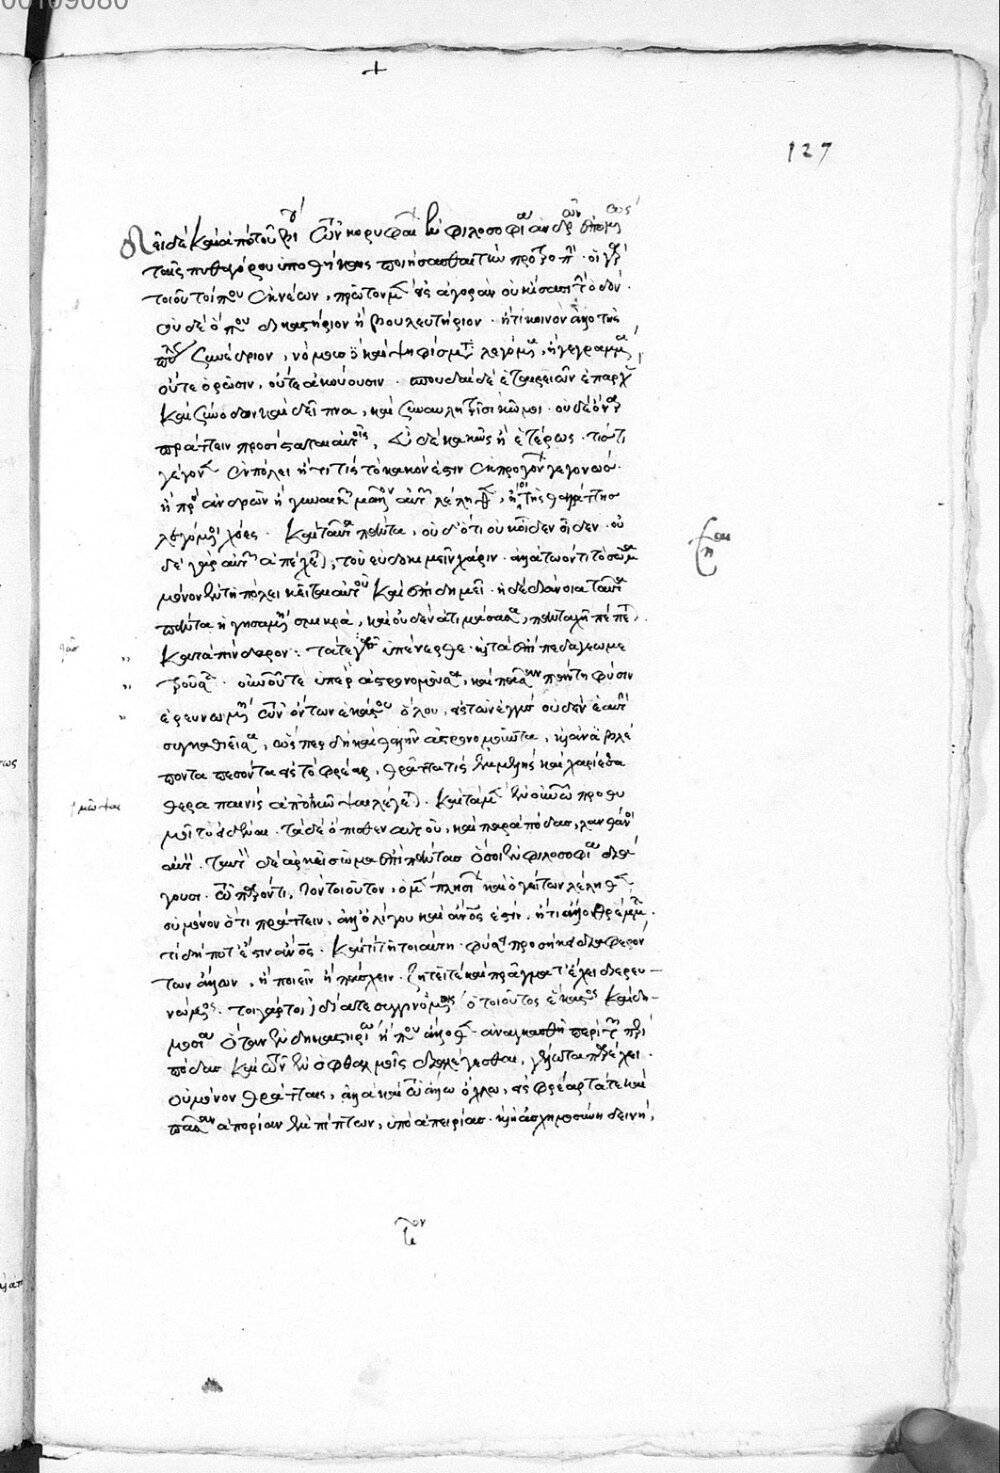 127
Δεῖ δὲ καὶ ἀπὸ τοῦ βίου τῶν κορυφαίων ἐν φιλοσοφίᾳ ἀνδρῶν ἑπομένως
ταῖς πυθαγόρου ὑποθήκαις ποιήσασθαι τὴν προτροπήν· οἱ γὰρ
τοιοῦτοί που ἐκ νέων, πρῶτον μὲν εἰς ἀγορὰν οὐκ ἴσασι τὴν ὁδόν·
οὐδὲ ὅπου δικαστήριον ἢ βουλευτήριον· ἤ τι κοινὸν ἄλλο τῆς
πόλεως ξυνέδριον, νόμους δὲ καὶ ψηφίσματα λεγόμενα, ἢ γεγραμμένα,
οὔτε ὁρῶσιν, οὔτε ἀκούουσιν· σπουδαὶ δὲ ἑταιρειῶν ἐπ' ἀρχὰς
καὶ ξύνοδοι καὶ δεῖπνα, καὶ ξὺν αὐλητρίσι κῶμοι· οὐδὲ ὄναρ
πράττειν προσίσταται αὐτοῖς, εὖ δὲ ἢ κακῶς ἢ ἑτέρως· τί ὅτι
γέγονεν ἐν πόλει ἤ τί τις τὸ κακόν ἐστιν ἐκ προγόνων γεγονωσ·
ἢ πρὸς ἀνδρῶν ἢ γυναικῶν μᾶλλον αὐτὸν λέληθεν, ἢ οἱ τῆς θαλάττης
λεγόμενοι χόες· καὶ ταῦτα πάντα, οὐδ' ὅτι οὐκ οἶδεν οἶδεν· οὐ
δὲ γὰρ αὐτῶν ἀπέχεται, τοῦ εὐδοκιμεῖν χάριν· ἀλλὰ τῷ ὄντι τὸ σῶμα
μόνον ἐν τῇ πόλει κεῖται αὐτοῦ καὶ ἐπιδημεῖ· ἡ δὲ διάνοια ταῦτα
πάντα ἡγησαμένη σμικρὰ, καὶ οὐδὲν ἀτιμάσασα, πανταχῇ πέπεται
κατὰ πίνδαρον· τά τε γᾶς ὑπένερθε· καὶ τὰ ἐπίπεδα γεωμε
τροῦσα· οὐρανοῦ τε ὑπὲρ ἀστρονομοῦσα, καὶ πᾶσαν πάντῃ φύσιν
ἐρευνωμένη τῶν ὄντων ἑκάστου ὅλου, εἰς τῶν ἐγγὺς οὐδὲν ἑαυτὴν
συγκαθιεῖσα, ὥσπερ δὴ καὶ θαλῆν ἀστρονομοῦντα, καὶ ἄνω βλέ
ποντα πεσόντα εἰς τὸ φρέαρ, θρᾷττά τις ἐμμελὴς καὶ χαρίεσσα
θεραπαινὶς ἀποσκῶψαι λέγεται· καὶ τὰ μὲν ἐν οὐρανῷ προθυ
μοῖτο εἰδέναι· τὰ δὲ ὄπισθεν αὐτοῦ, καὶ παρὰ πόδας, λανθάνοι
αὐτόν· ταυτὸν δὲ ἀρκεῖ σκῶμμα ἐπὶ πάντας ὅσοι ἐν φιλοσοφίᾳ διά
γουσι· τῷ γὰρ ὄντι, τὸν τοιοῦτον, ὁ μὲν πλησίον καὶ ὁ γείτων λέληθεν·
οὐ μόνον ὅτι πράττειν, ἀλλ' ὀλίγου καὶ ἄνθρωπός ἐστιν, ἤ τι ἄλλο θρέμμα·
τί δή ποτ' ἐστὶν ἄνθρωπος· καὶ τί τῇ τοιαύτῃ φύσει προσήκει διάφερον
τῶν ἄλλων, ἢ ποιεῖν ἢ πάσχειν· ζητεῖ τε καὶ πράγματ' ἔχει διερευ-
νώμενος· τοιγάρτοι ἰδίᾳ τε συγγινόμενος ὁ τοιοῦτος ἑκάστῳ καὶ δη-
μοσίᾳ ὅταν ἐν δικαστηρίῳ ἤ που ἄλλοθι ἀναγκασθῇ περὶ τῶν παρὰ
πόδας καὶ τῶν ἐν ὀφθαλμοῖς διαλέγεσθαι, γέλωτα παρέχει
οὐ μόνον θρᾴτταις, ἀλλὰ καὶ τῷ ἄλλῳ ὄχλῳ, εἰς φρέαρτά τε καὶ
πᾶσαν ἀπορίαν ἐμπίπτων, ὑπὸ ἀπειρίας· καὶ ἡ ἀσχημοσύνη δεινή,